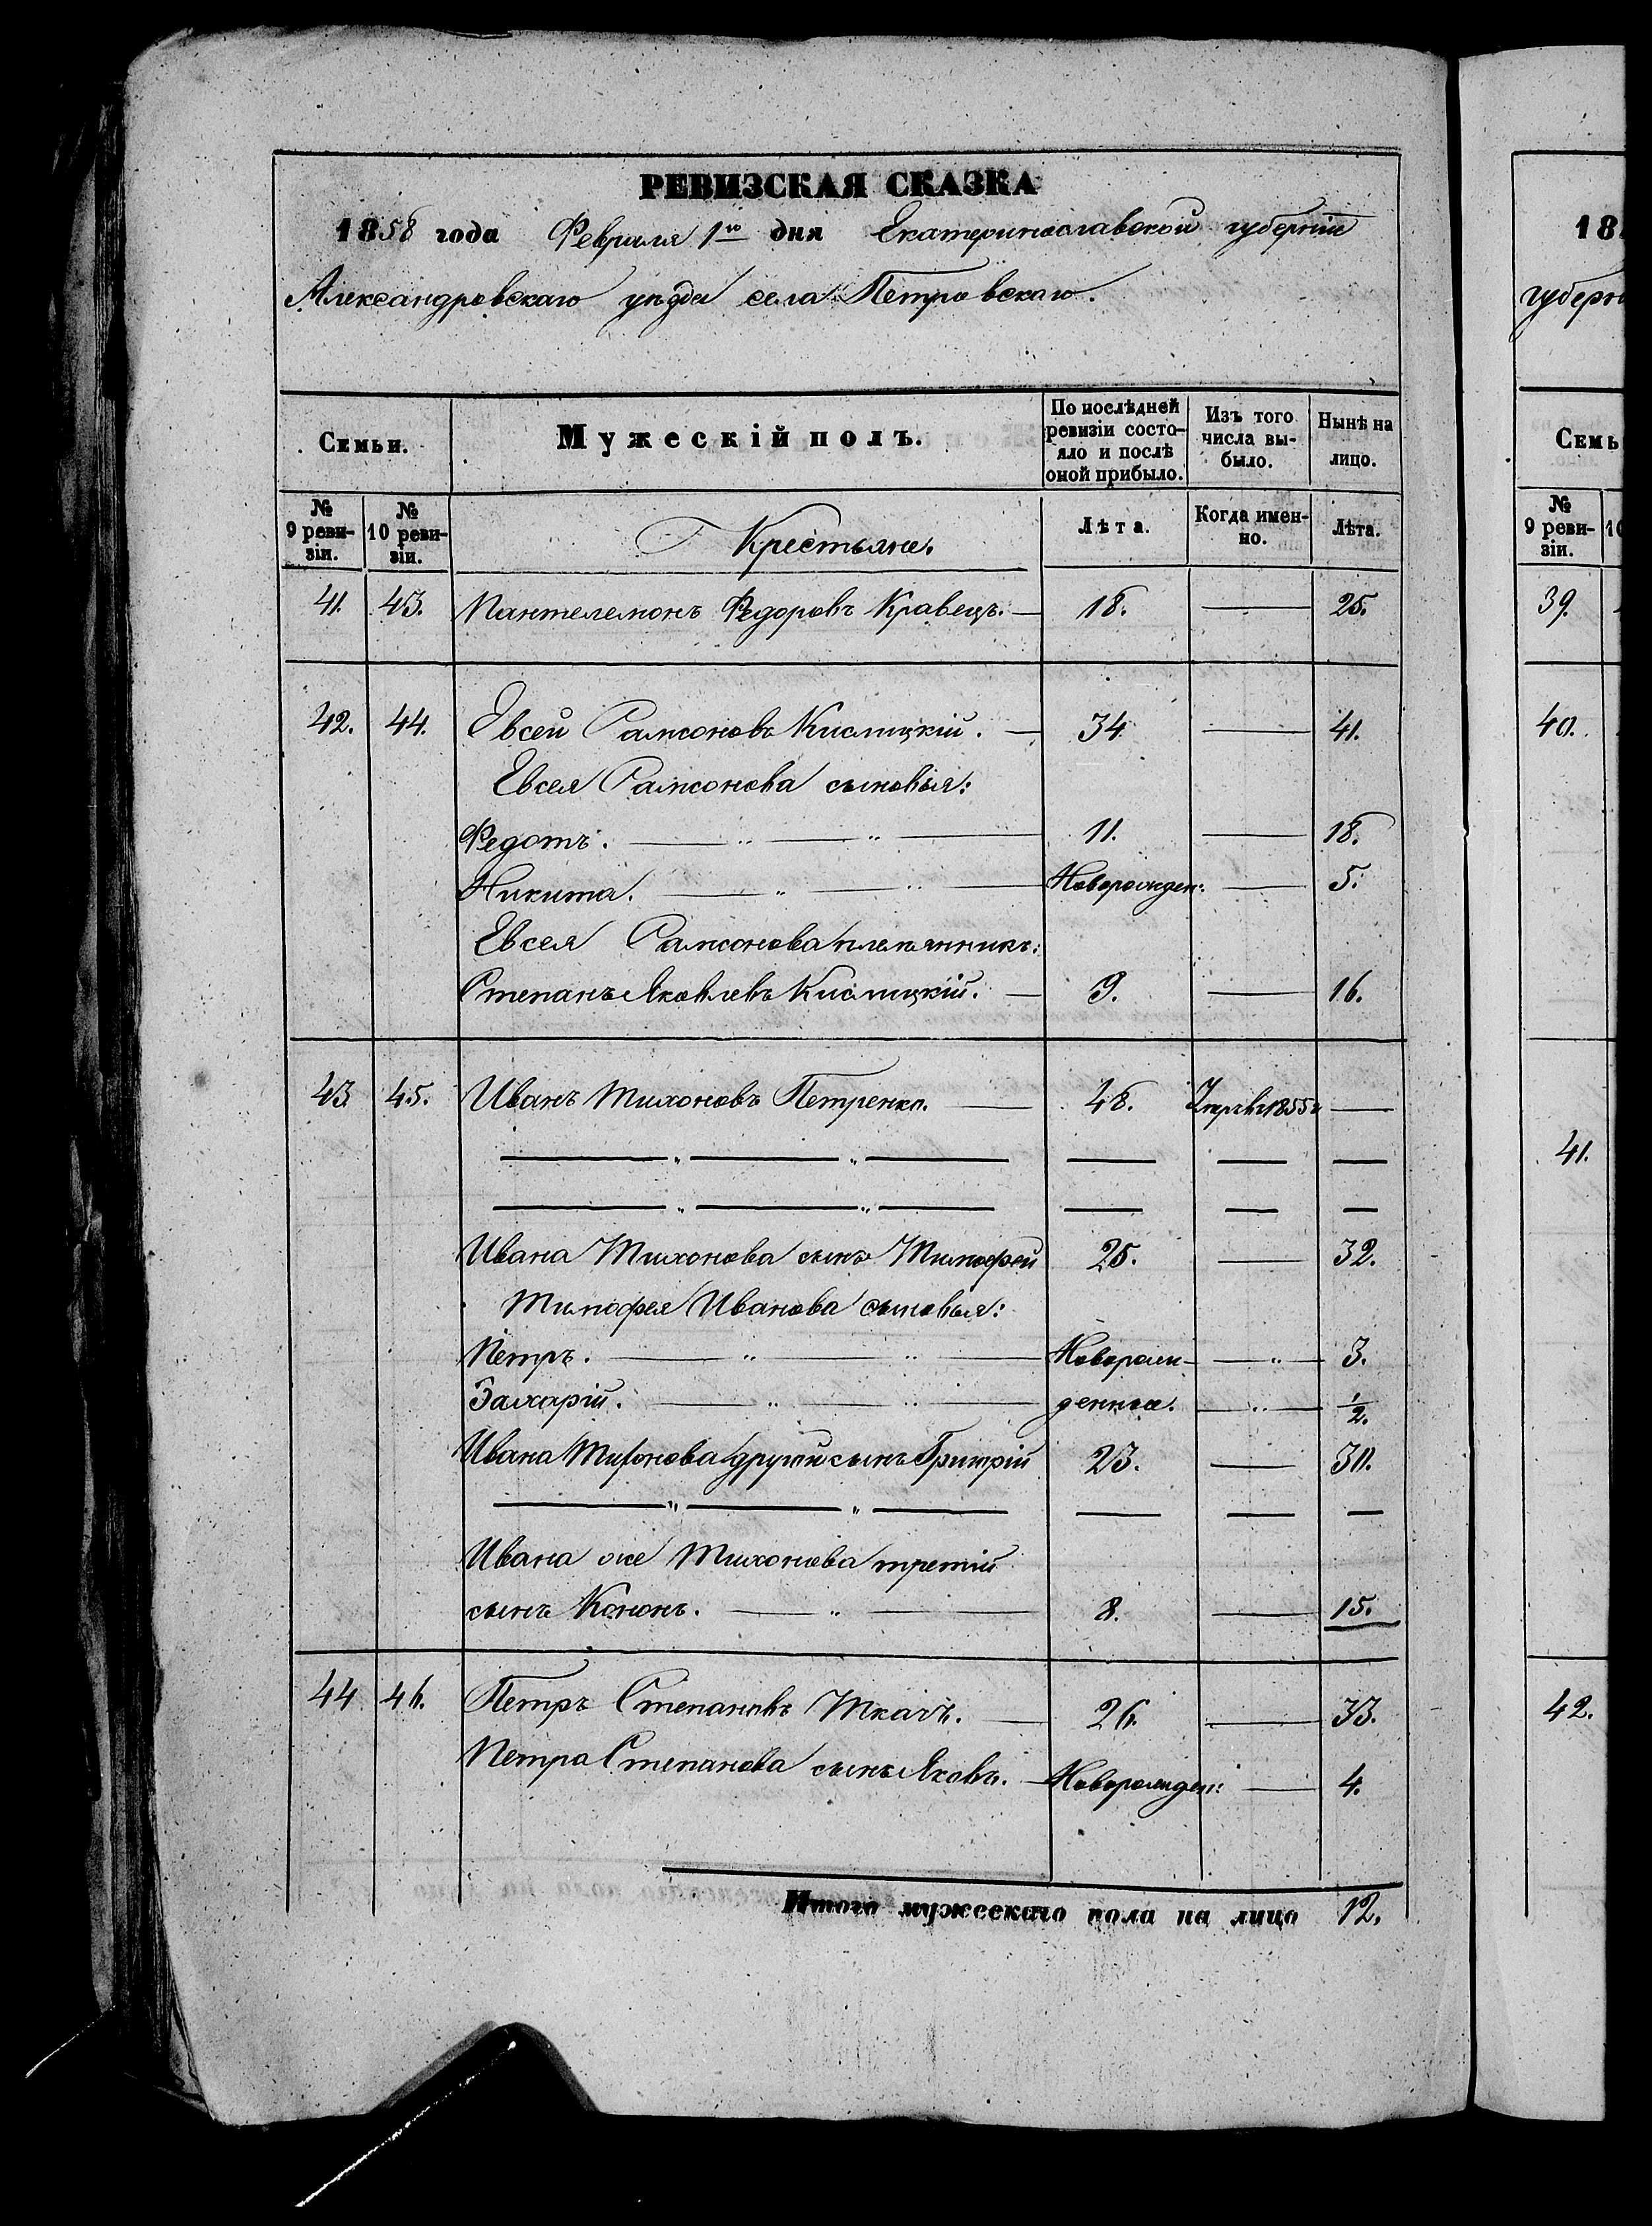 РЕВИЗСКАЯ СКАЗКА
1858 года Февраля 1го дня Екатеринославской губерніи
Александровскаго уѣзда села Петровскаго.
Семьи. Мужескій полъ. По послѣдней ревизіи состояло и послѣ оной прибыло. Изъ того числа выбыло. Нынѣ на лицо.
№ 9 ревизіи. № 10 ревизіи. Крестьяне. Лѣта. Когда именно. Лѣта.
41. 43. Пантелемонъ Федоровъ Кравецъ. — 18. — 25.
42. 44. Евсей Самсоновъ Кислицкій. — 34 — 41.
Евсея Самсонова сыновья:
Федотъ. — „ — „ — 11. — 18.
Никита. — „ — „ — Новорожден: — 5.
Евсея Самсонова племянникъ:
Степанъ Яковлевъ Кислицкій. — 9. — 16.
43 45. Иванъ Тихоновъ Петренко. — 48. Умръ въ 1855 г —
— „ — „ — — — —
— „ — „ — — — —
Ивана Тихонова сынъ Тимофей 25. — 32.
Тимофея Ивановa сыновья:
Петръ. — „ — „ — Новорож- — „ — 3.
Захарій. — „ — „ — денные. — „ — 1/2.
Ивана Тихонова другой сынъ Григорій 23. — 30.
— „ — „ — — — —
Ивана же Тихонова третій
сынъ Кононъ. — „ — 8. — 15.
44 46. Петръ Степановъ Ткачъ. — 26. — 33.
Петра Степанова сынъ Яковъ. — Новорожден: — 4.
Итого мужескаго пола на лицо 12.
18
губерн
Семь
№ 9 ревизіи. 10
39.
40.
41.
42.